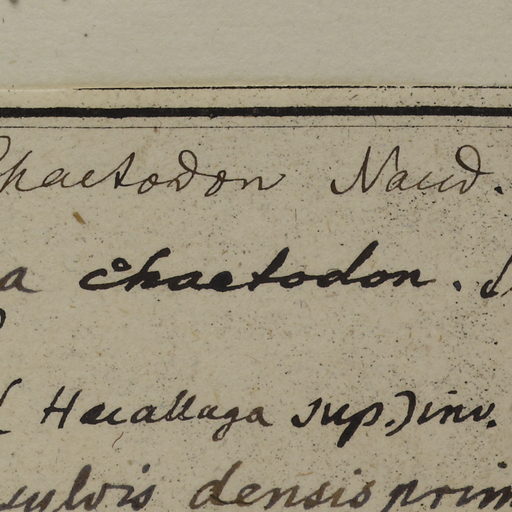 Chaetodon Naud.
a chaetodon.
( Huallaga sup.) inv.
sylvis densis prim